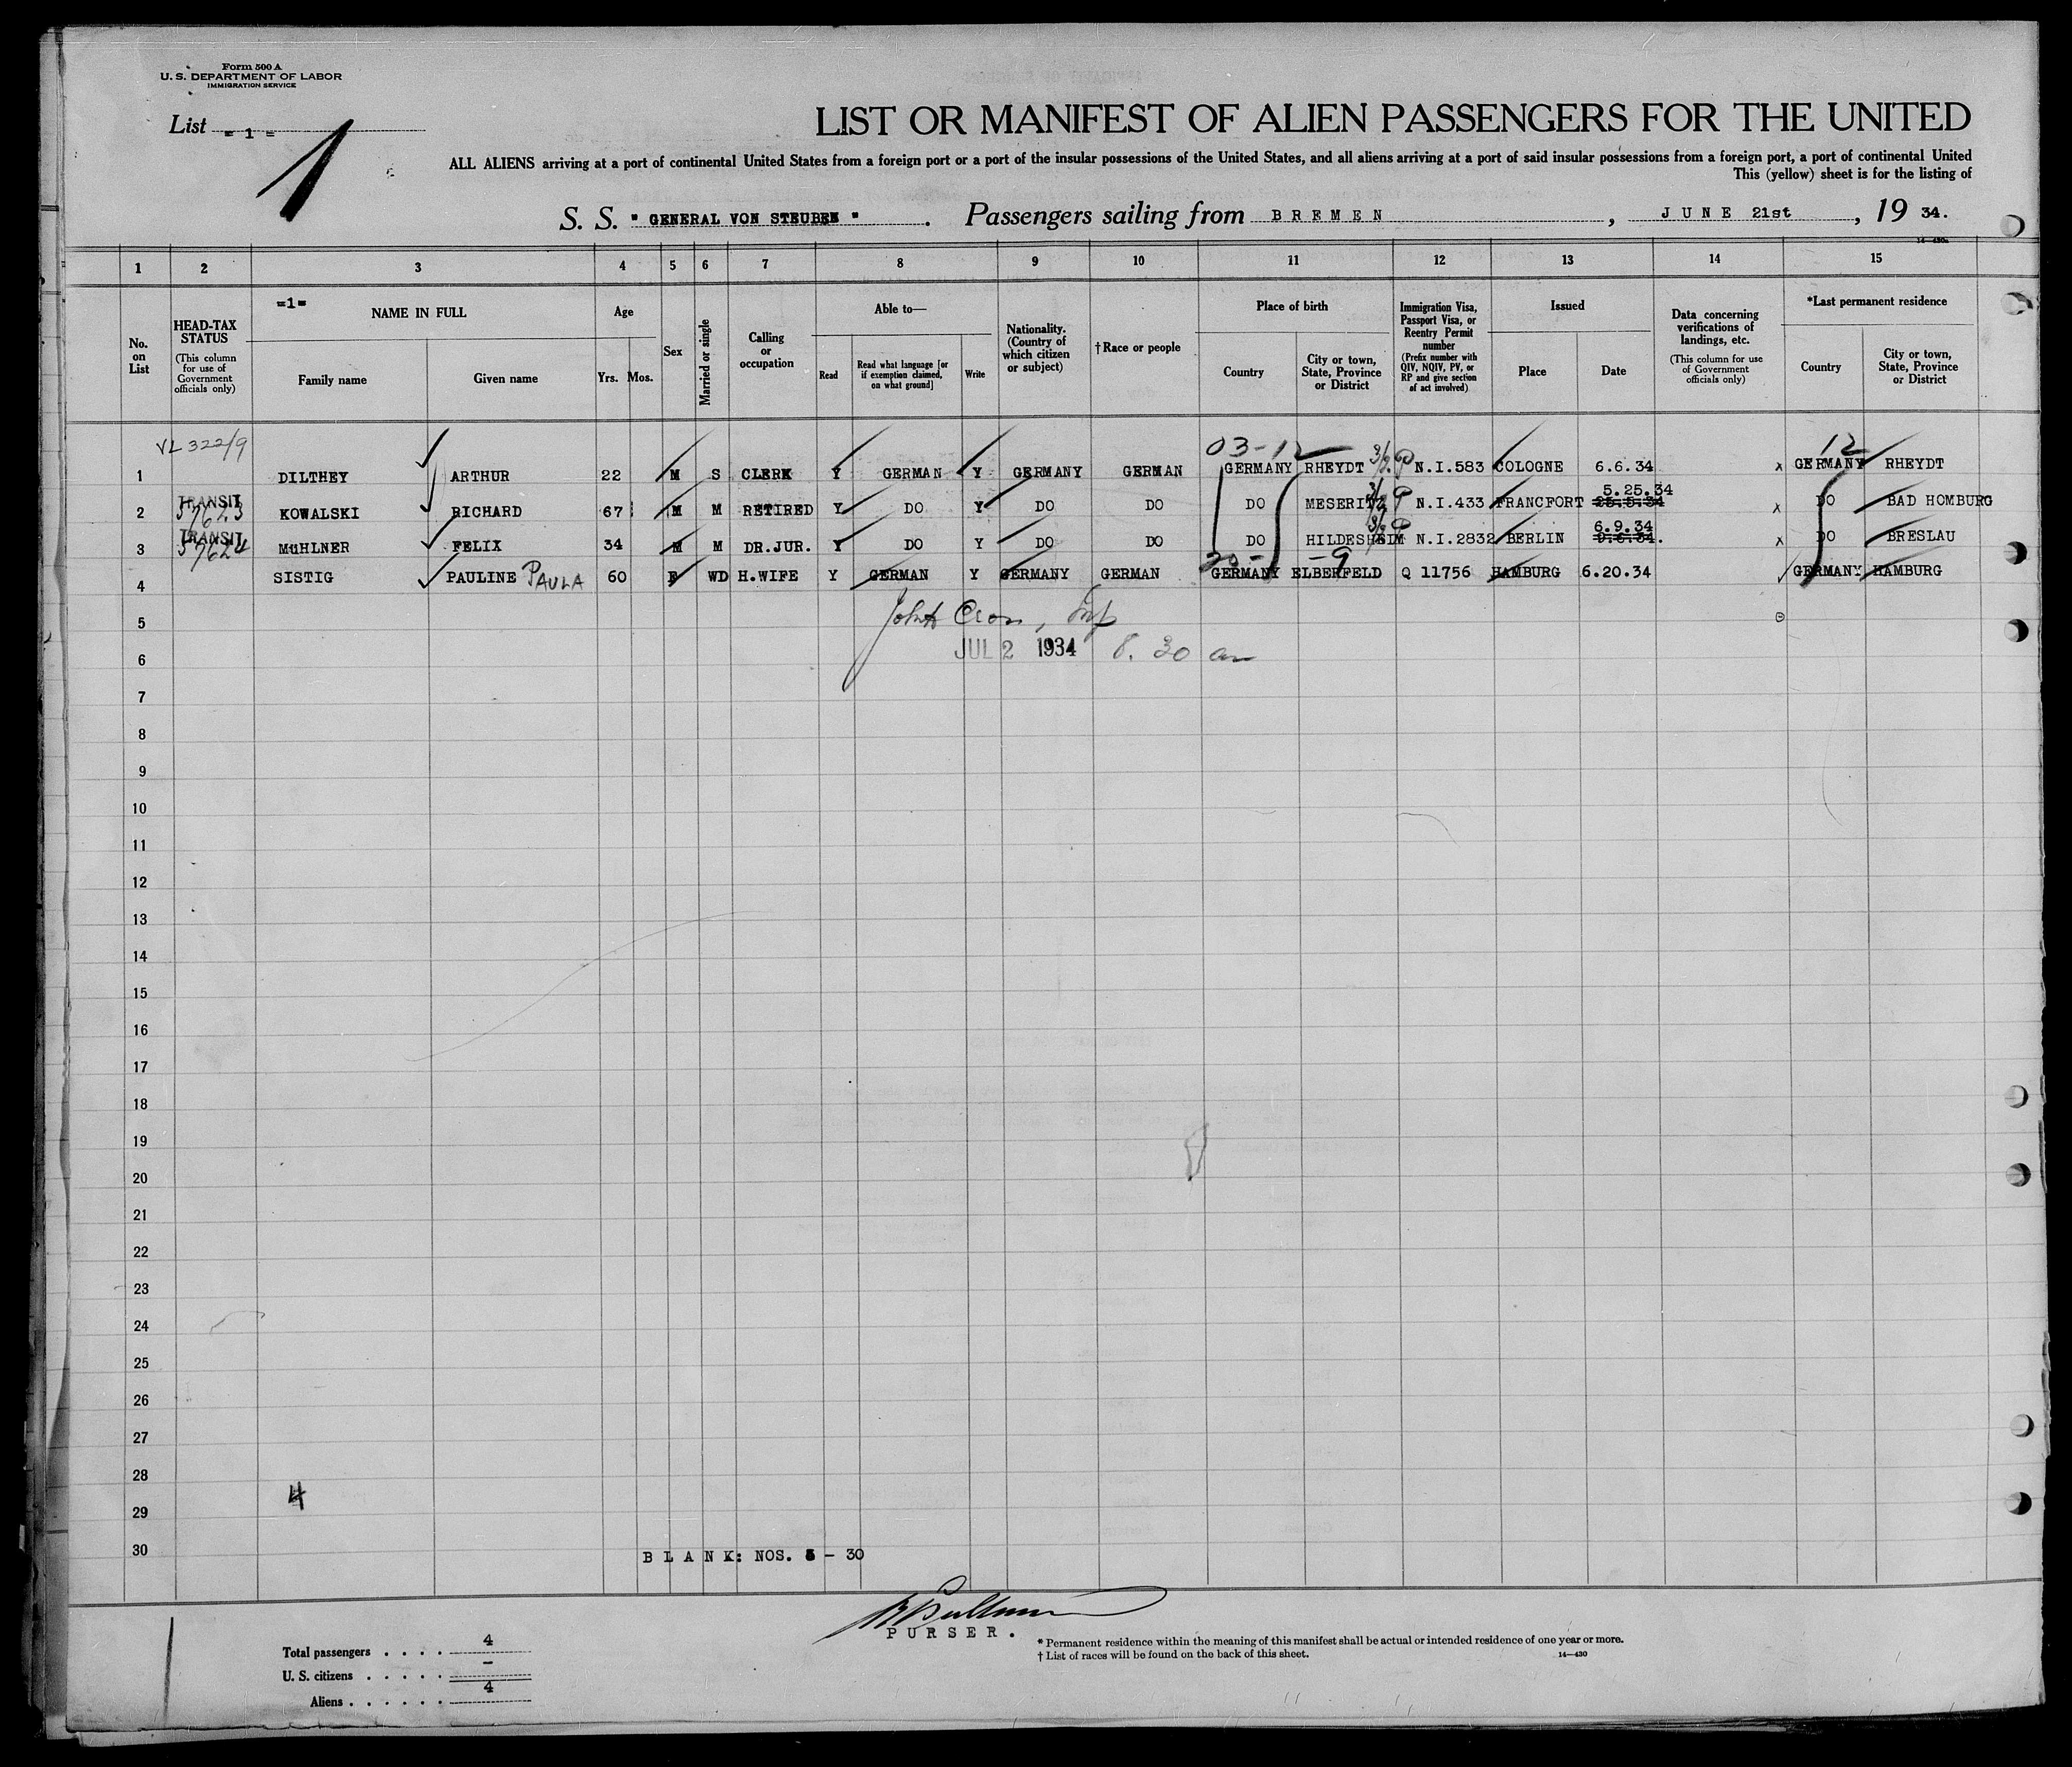 Form 500 A
U. S. DEPARTMENT OF LABOR
IMMIGRATION SERVICE
List = 1 =
1
LIST OR MANIFEST OF ALIEN PASSENGERS FOR THE UNITED
ALL ALIENS arriving at a port of continental United States from a foreign port or a port of the insular possessions of the United States, and all aliens arriving at a port of said insular possessions from a foreign port, a port of continental United
This (yellow) sheet is for the listing of
S. S. " GENERAL VON STEUBEN " . Passengers sailing from BREMEN , JUNE 21st , 19 34.
14—430a
1 2 3 4 5 6 7 8 9 10 11 12 13 14 15
No. on List
HEAD-TAX STATUS
(This column for use of Government officials only)
=1=
NAME IN FULL
Family name
Given name
Age
Yrs. Mos.
Sex
Married or single
Calling or occupation
Able to—
Read
Read what language [or if exemption claimed, on what ground]
Write
Nationality. (Country of which citizen or subject)
†Race or people
Place of birth
Country
City or town, State, Province or District
Immigration Visa, Passport Visa, or Reentry Permit number
(Prefix number with QIV, NQIV, PV, or RP and give section of act involved)
Issued
Place
Date
Data concerning verifications of landings, etc.
(This column for use of Government officials only)
*Last permanent residence
Country
City or town, State, Province or District
VL 322/9 03-12 3/2 P 12
1 DILTHEY ARTHUR 22 M S CLERK Y GERMAN Y GERMANY GERMAN GERMANY RHEYDT N.I.583 COLOGNE 6.6.34 x GERMANY RHEYDT
TRANSIT 57623 3/2 P 5.25.34
2 KOWALSKI RICHARD 67 M M RETIRED Y DO Y DO DO DO MESERITZ N.I.433 FRANCFORT 25.5.34 x DO BAD HOMBURG
TRANSIT 57624 3/2 P 6.9.34
3 MüHLNER FELIX 34 M M DR.JUR. Y DO Y DO DO DO HILDESHEIM N.I.2832 BERLIN 9.6.34. x DO BRESLAU
20- -9
4 SISTIG PAULINE PAULA 60 F WD H.WIFE Y GERMAN Y GERMANY GERMAN GERMANY ELBERFELD Q 11756 HAMBURG 6.20.34 GERMANY HAMBURG
5
6 JUL 2 1934 8.30 am
7
8
9
10
11
12
13
14
15
16
17
18
19
20
21
22
23
24
25
26
27
28
4
29
30
BLANK: NOS. 5 - 30
PURSER.
Total passengers . . . . 4
U. S. citizens . . . . . -
Aliens . . . . . . 4
* Permanent residence within the meaning of this manifest shall be actual or intended residence of one year or more.
† List of races will be found on the back of this sheet.
14—430